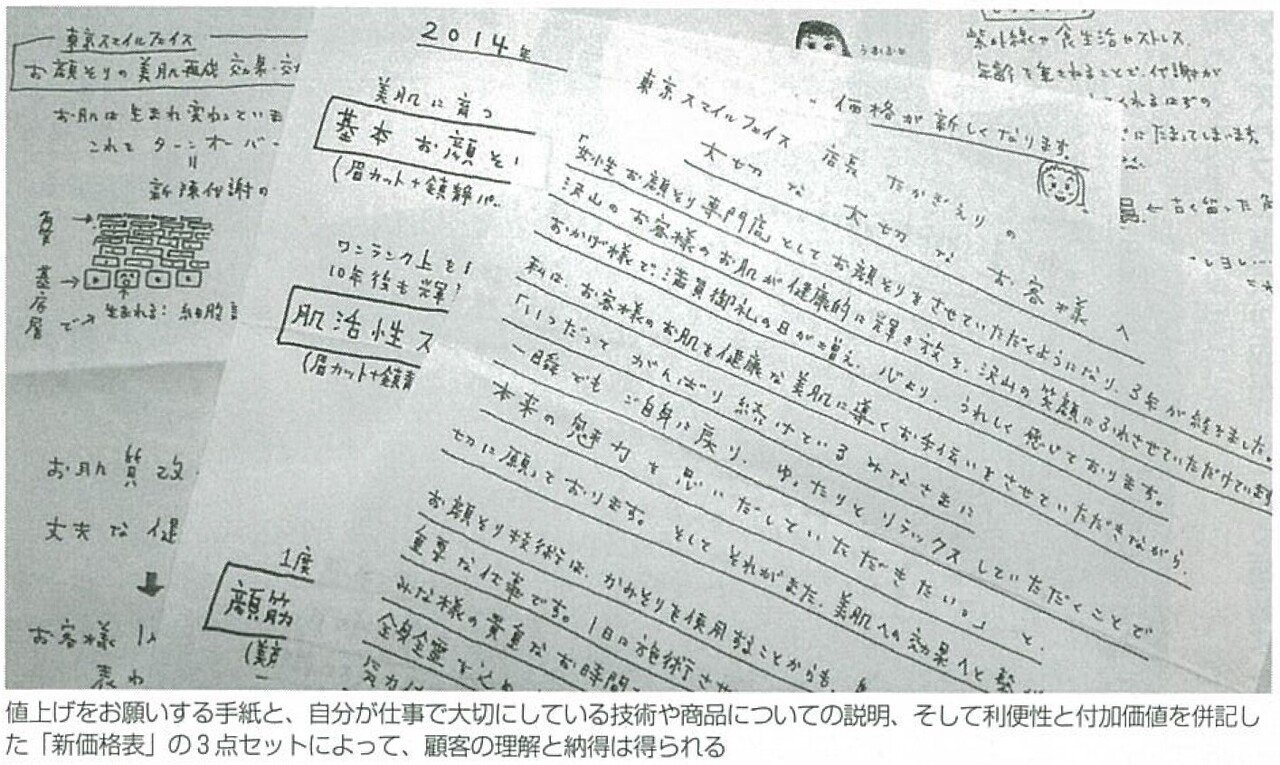 東京スマイルフェイス
お顔そりの美肌再成 効果・効
お肌は生まれ変わっていま
これを ターンオーバー
〃
新陳代謝の
角層
基底層
で→ 生まれる! 細胞
お肌質改
丈夫な健
お客様
表わ
2014年
美肌に育つ
基本 お顔そ
(眉カット+鎮静パ
ワンランク上を
10年後も輝
肌活性ス
(眉カット+鎮静
1度
顔筋
価格が新しくなります。
紫外線や食生活やストレス、
年齢を重ねることで、代謝が
くれるはずの
にたまってしまいます。
←古く留った角
東京スマイルフェイス 店長 たかぎえりの
大切な 大切な お客様へ
「女性お顔そり専門店」としてお顔そりをさせていただくようになり、3年が経ちました。
沢山のお客様のお肌が健康的に輝き放ち、沢山の笑顔にふれさせていただけています
おかげ様で、満員御礼の日が増え、心より、うれしく感じております。
私は、お客様のお肌を健康な美肌に導くお手伝いをさせていただきながら、
「いつだって がんばり続けている みなさまに
一瞬でも ご自身に戻り、ゆったりと リラックスしていただくことで
本来の魅力を思いだしていただきたい。」と、
切に願っております。そしてそれがまた、美肌への効果へと繋が
お顔そり技術は、かみそりを使用することからも、
重要な仕事です。1日に施術させ
みな様の貴重なお時間
全身全霊を込め
値上げをお願いする手紙と、自分が仕事で大切にしている技術や商品についての説明、そして利便性と付加価値を併記し
た「新価格表」の3点セットによって、顧客の理解と納得は得られる